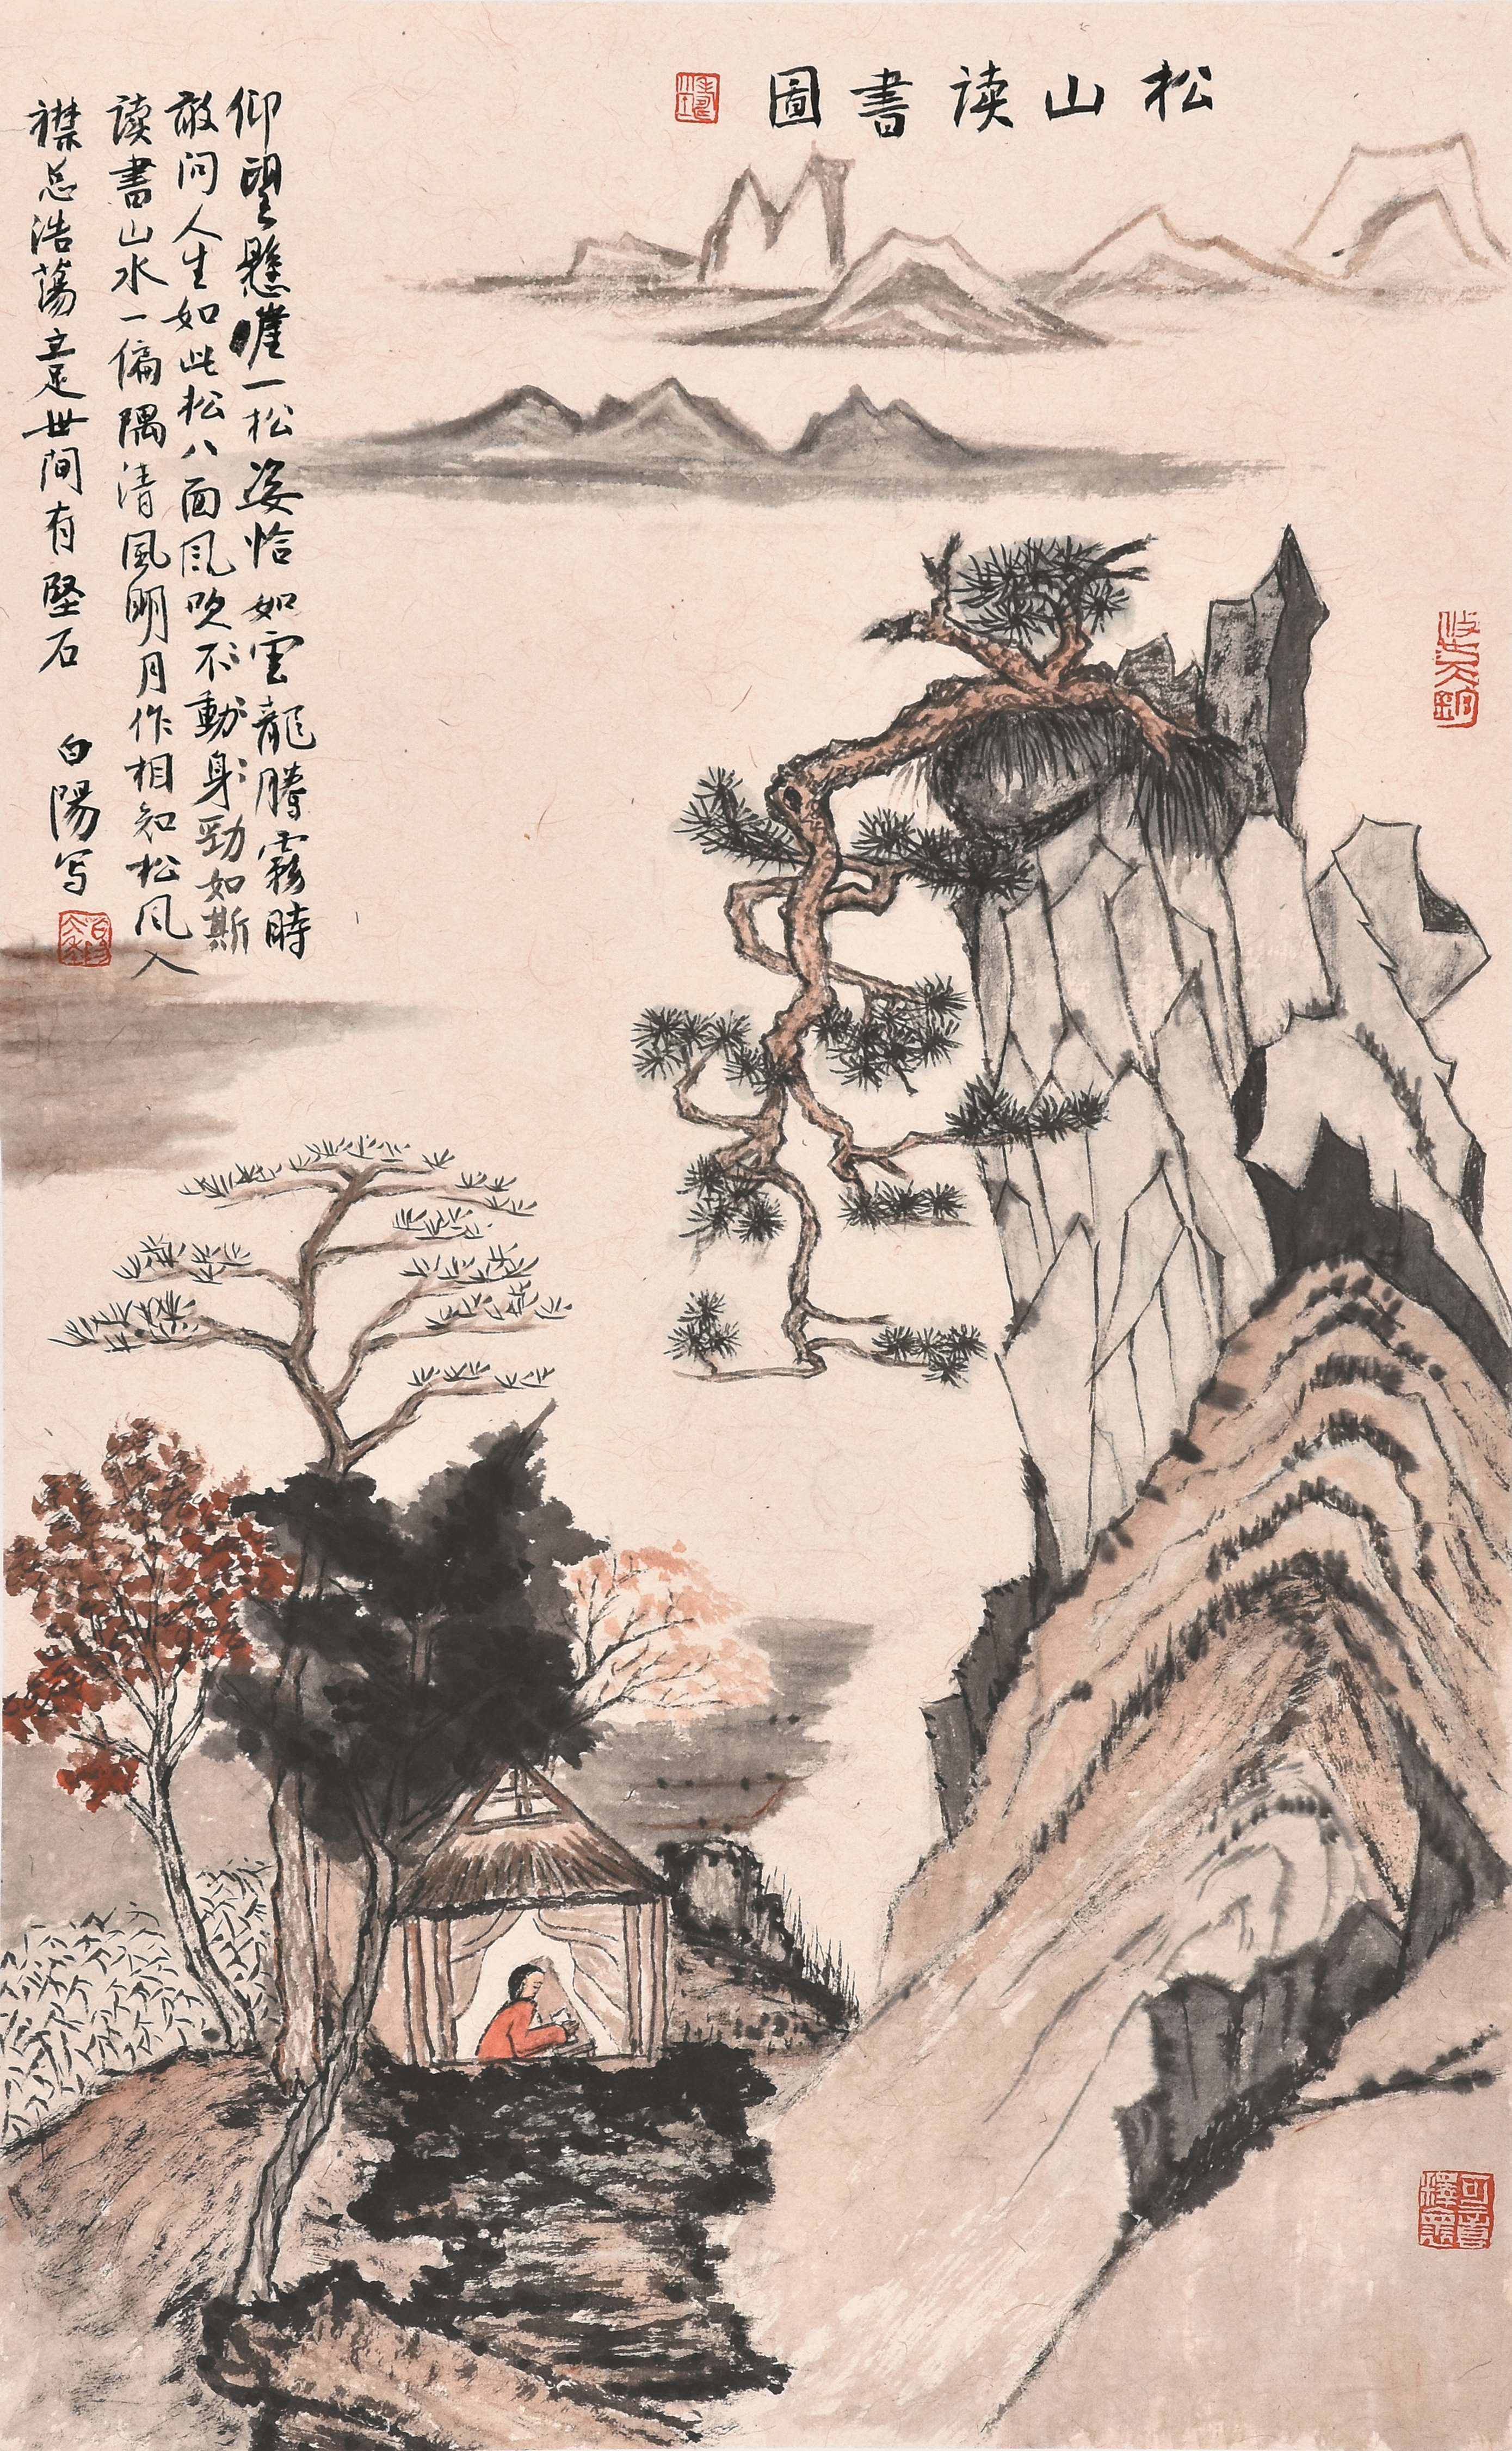 松山读書圖
仰望懸崖一松姿恰如雲龍騰霧時
敢问人生如此松八面风吹不〻動〻身〻勁如斯
读書山水一偏隅清風明月作相知松风入
襟总浩蕩立足世间有堅石
白陽写